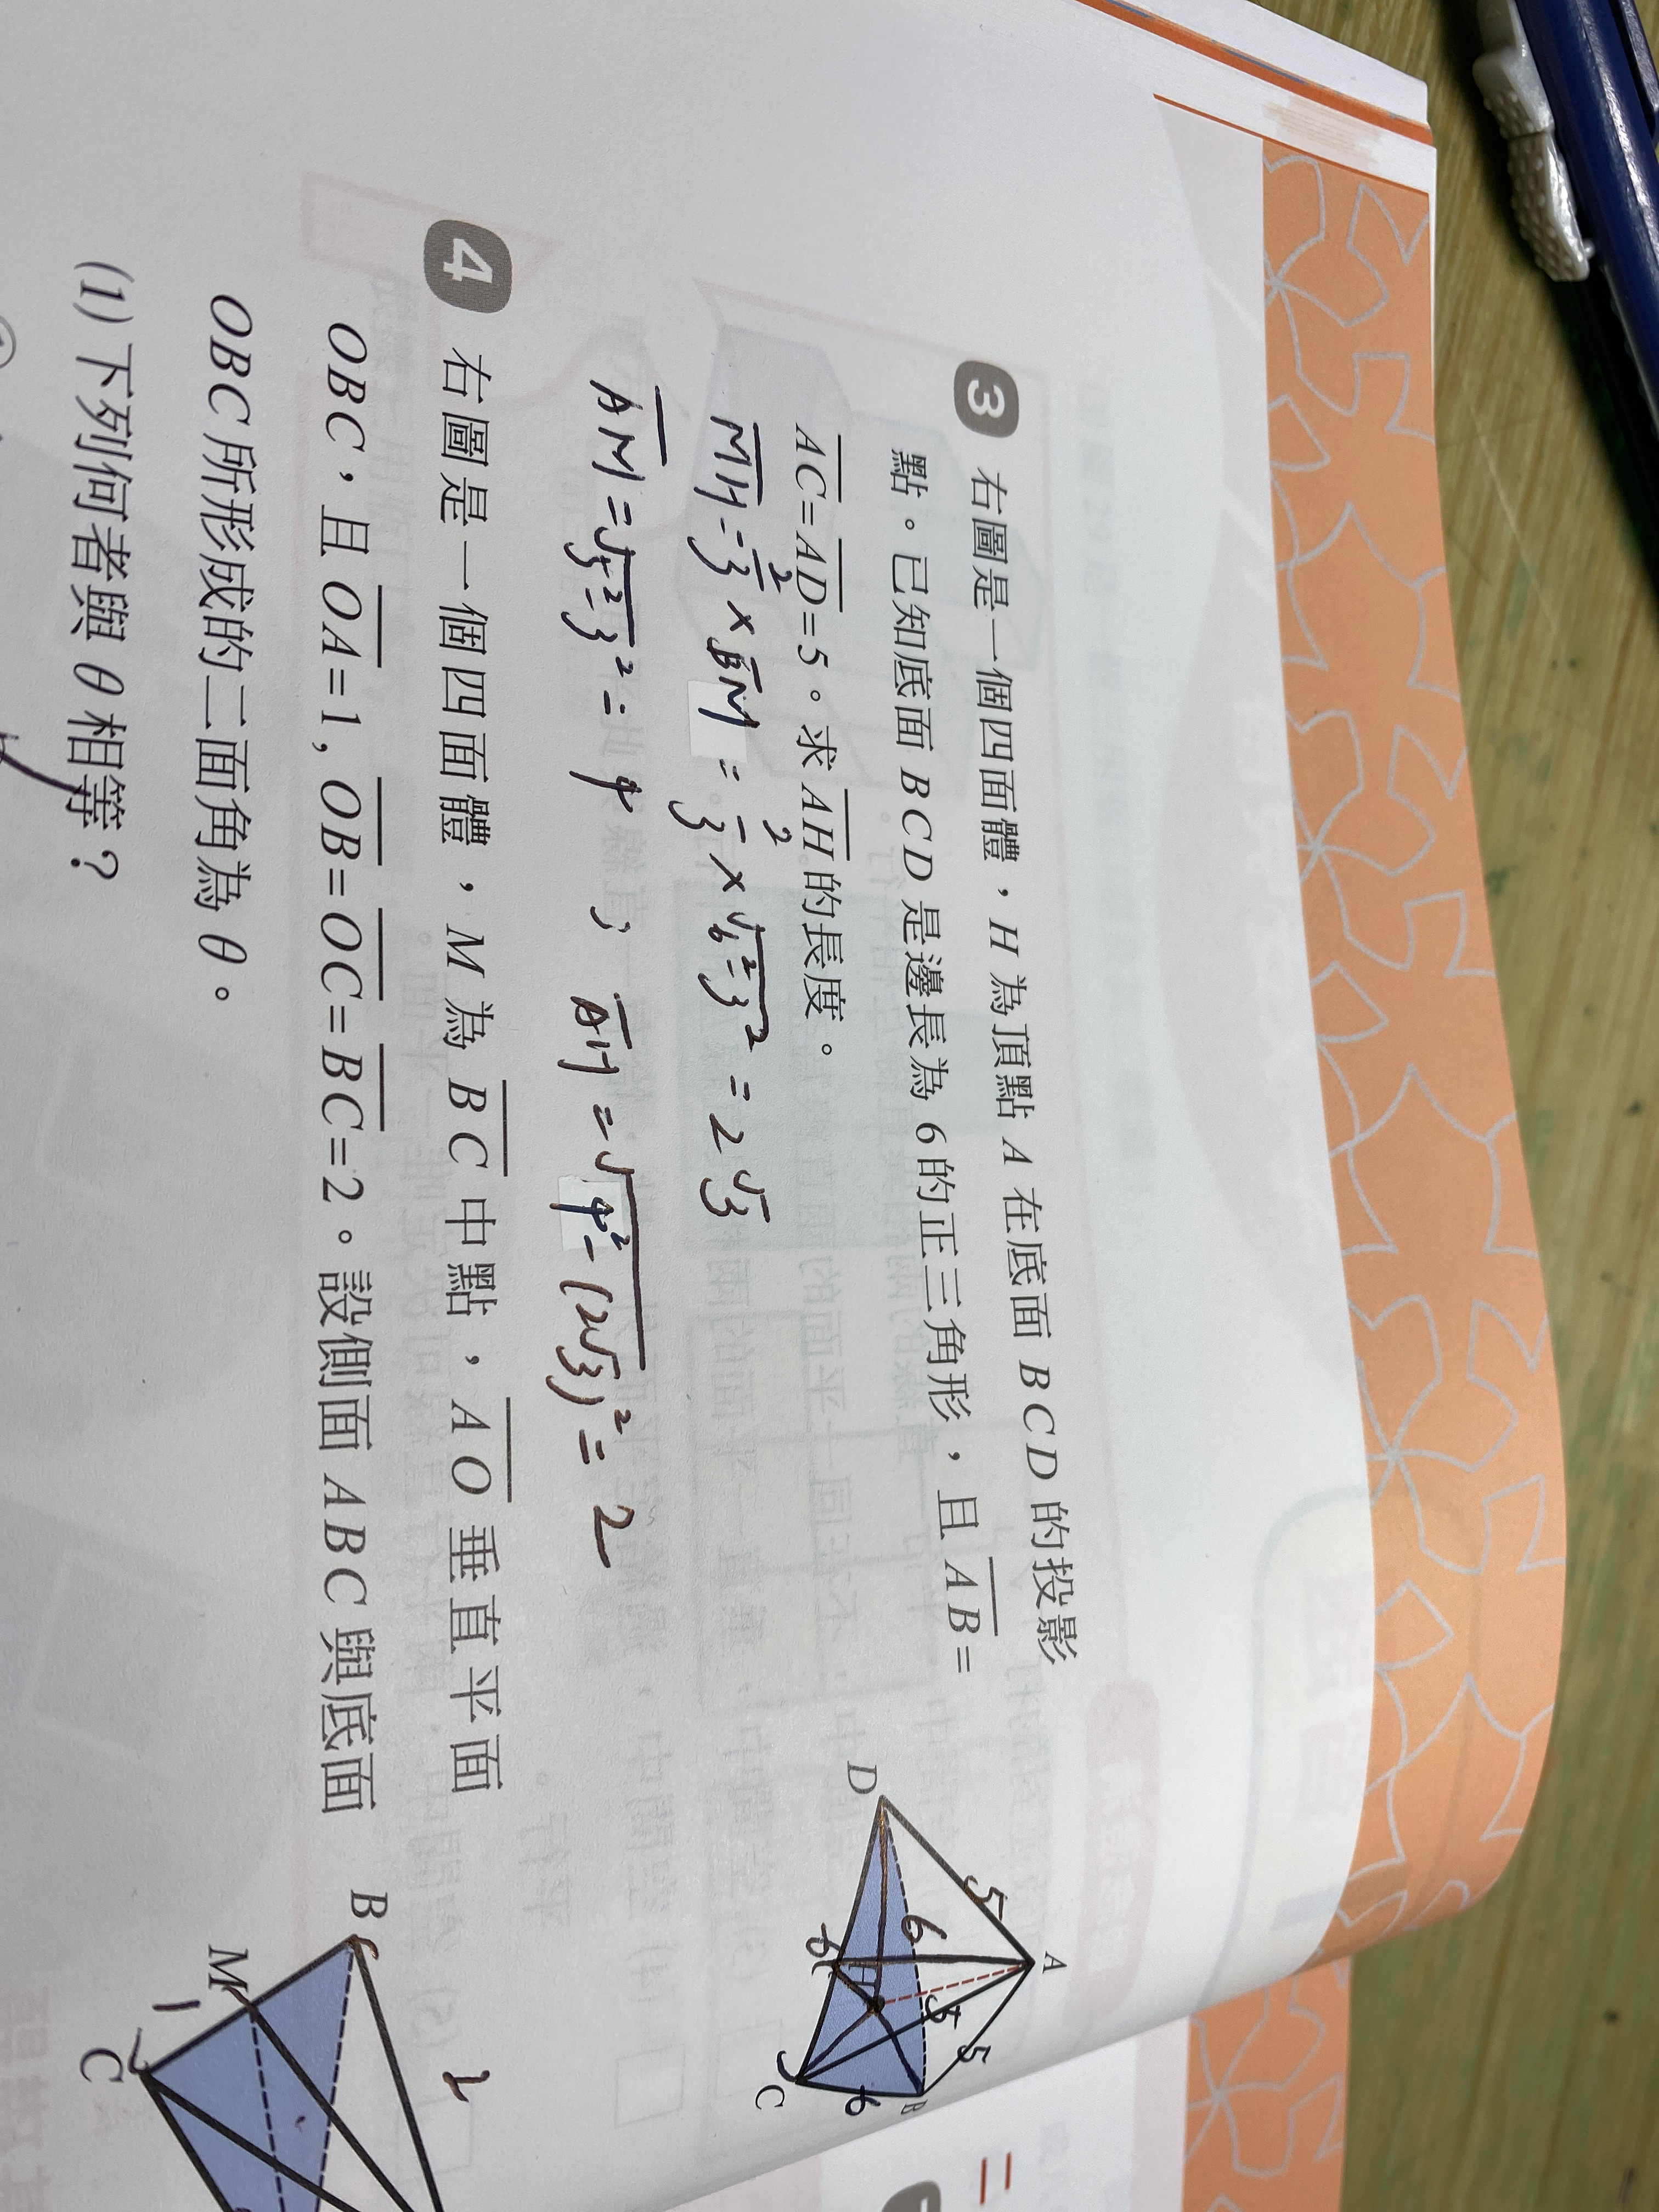 3 右圖是一個四面體，H 為頂點 A 在底面 BCD 的投影
點。已知底面 BCD 是邊長為 6 的正三角形，且 AB=
AC=AD=5。求 AH 的長度。
MH=2/3×BM=2/3×√6²-3²=2√3
AM=√5²-3²=4 ; AH=√4²-(2√3)²=2
D
A
B
C
5
6
5
5
6
6
4 右圖是一個四面體，M 為 BC 中點，AO 垂直平面
OBC，且 OA=1, OB=OC=BC=2。設側面 ABC 與底面
OBC 所形成的二面角為 θ。
(1) 下列何者與 θ 相等？
B
M
C
1
2